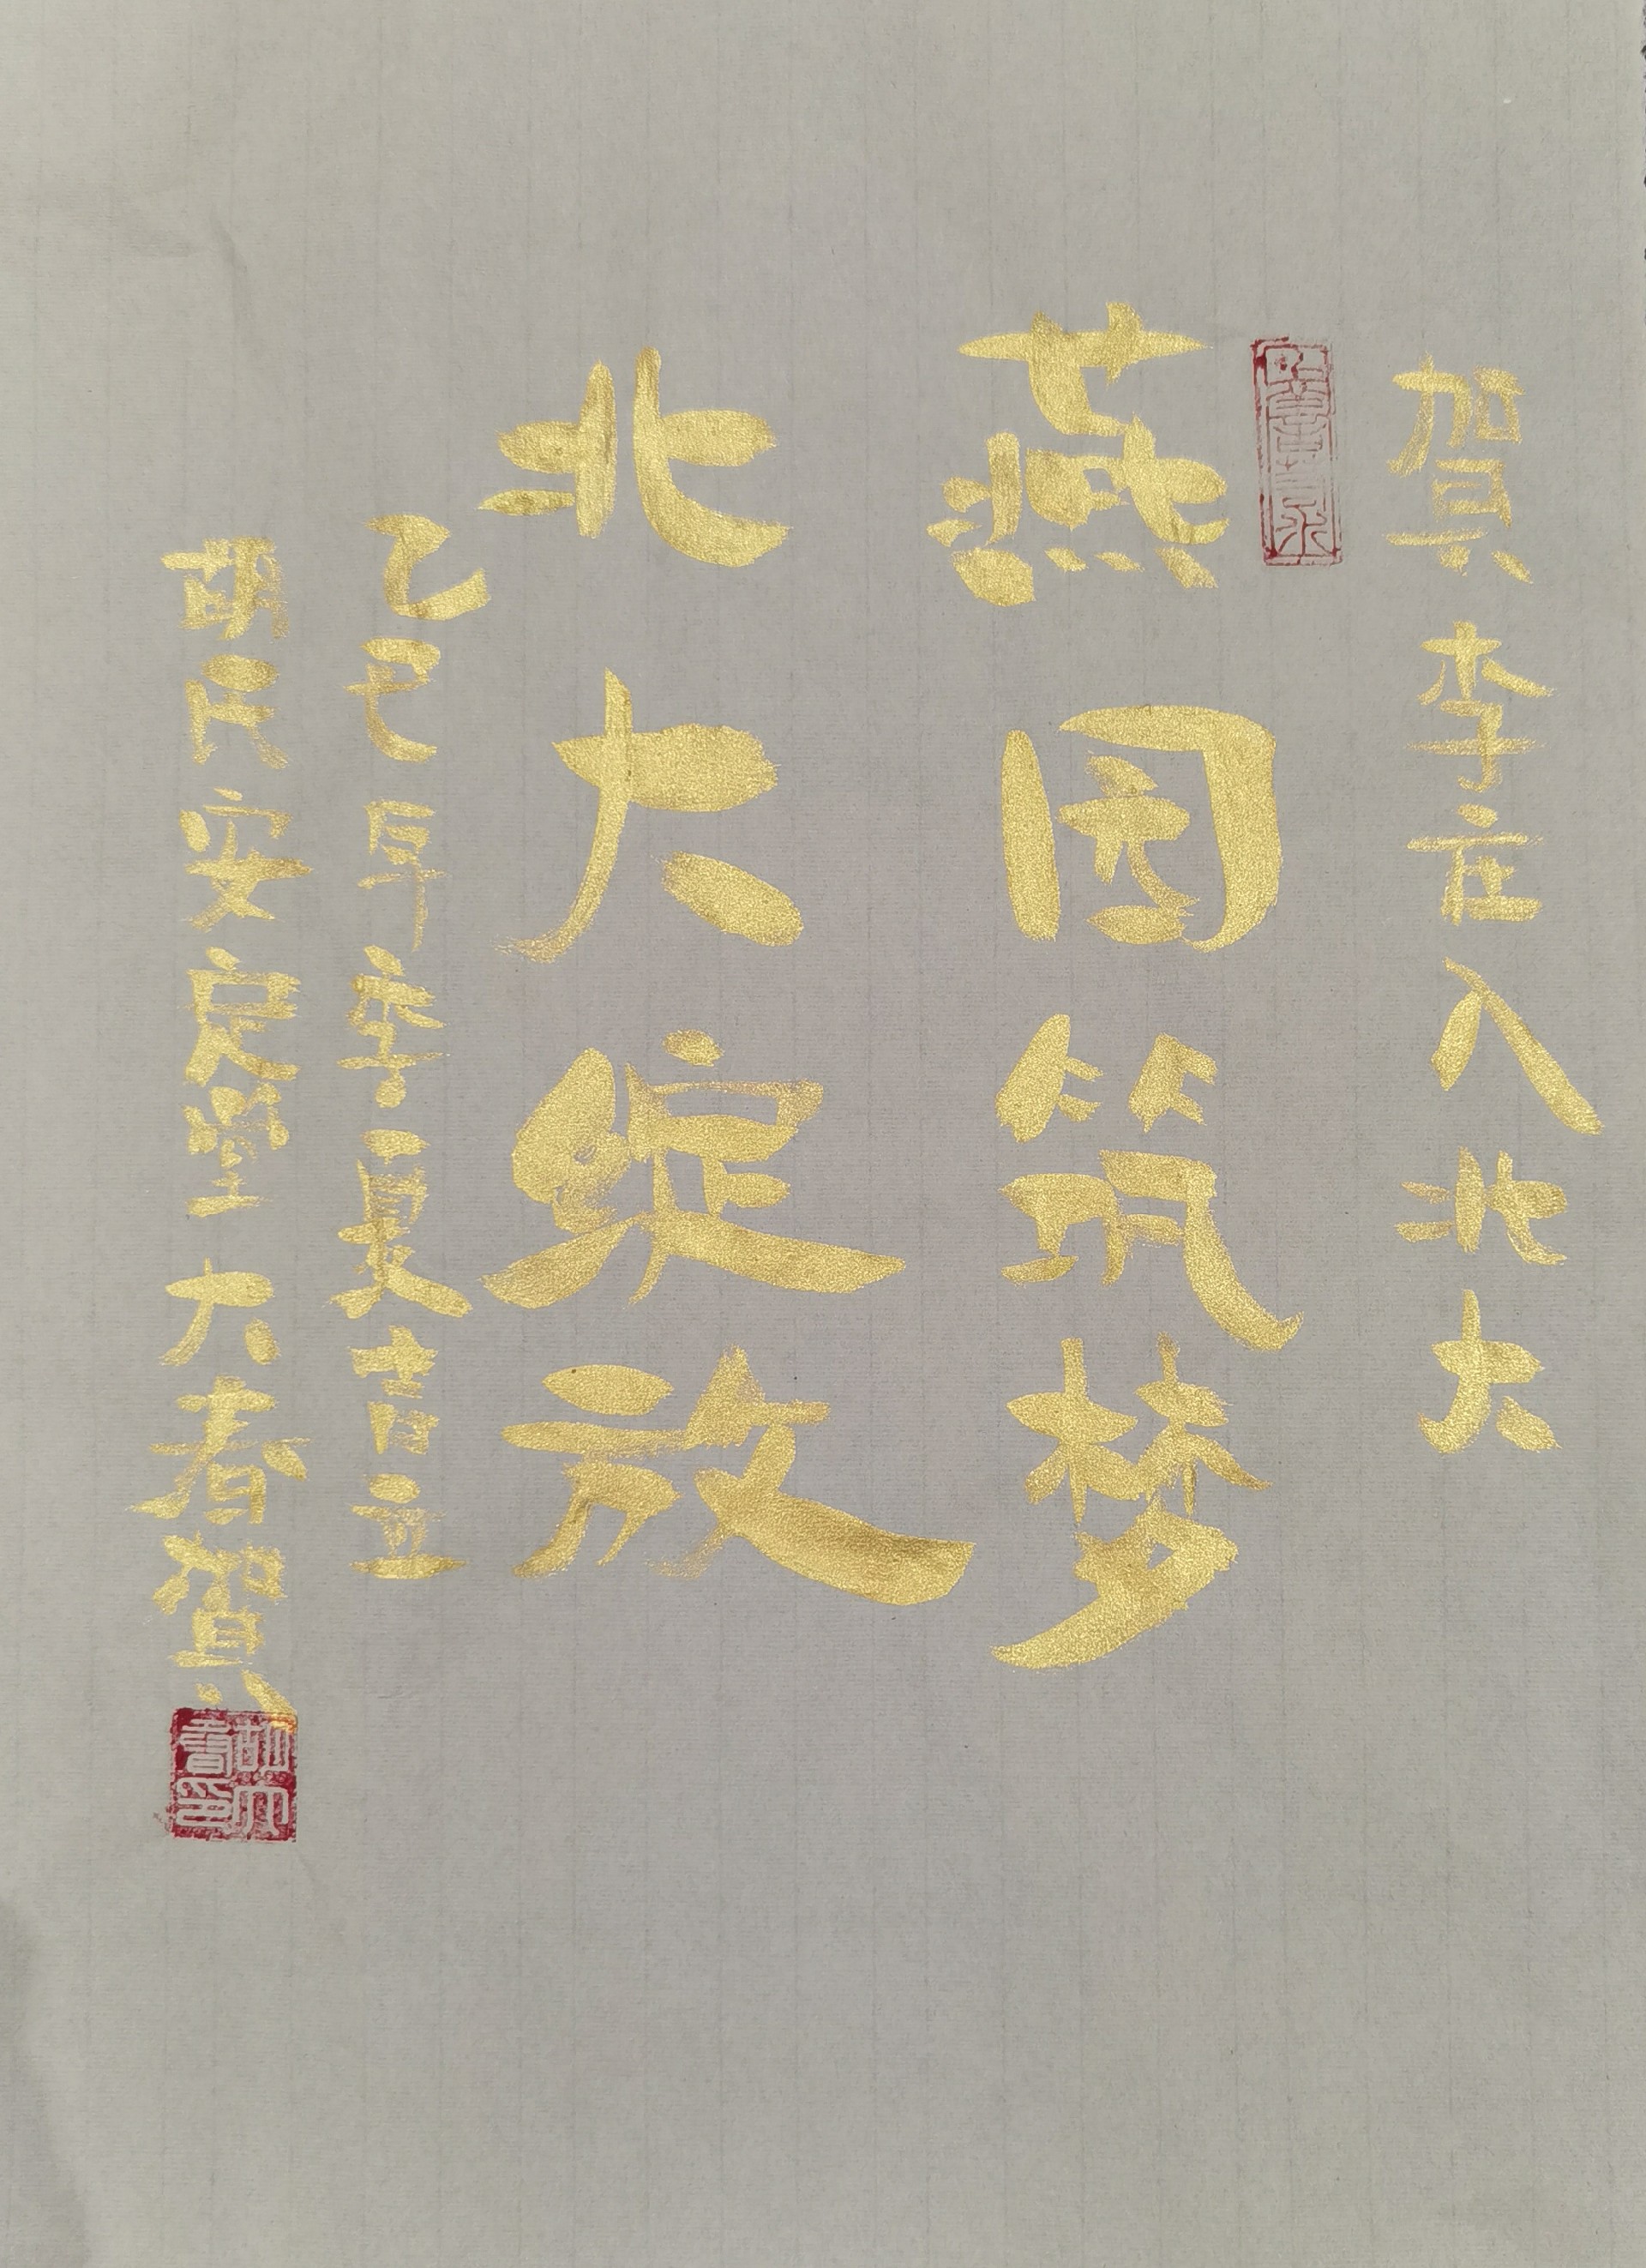 贺李庄入北大
燕园筑梦
北大绽放
乙巳年季夏吉立
胡氏安定堂大春贺
胡大春印